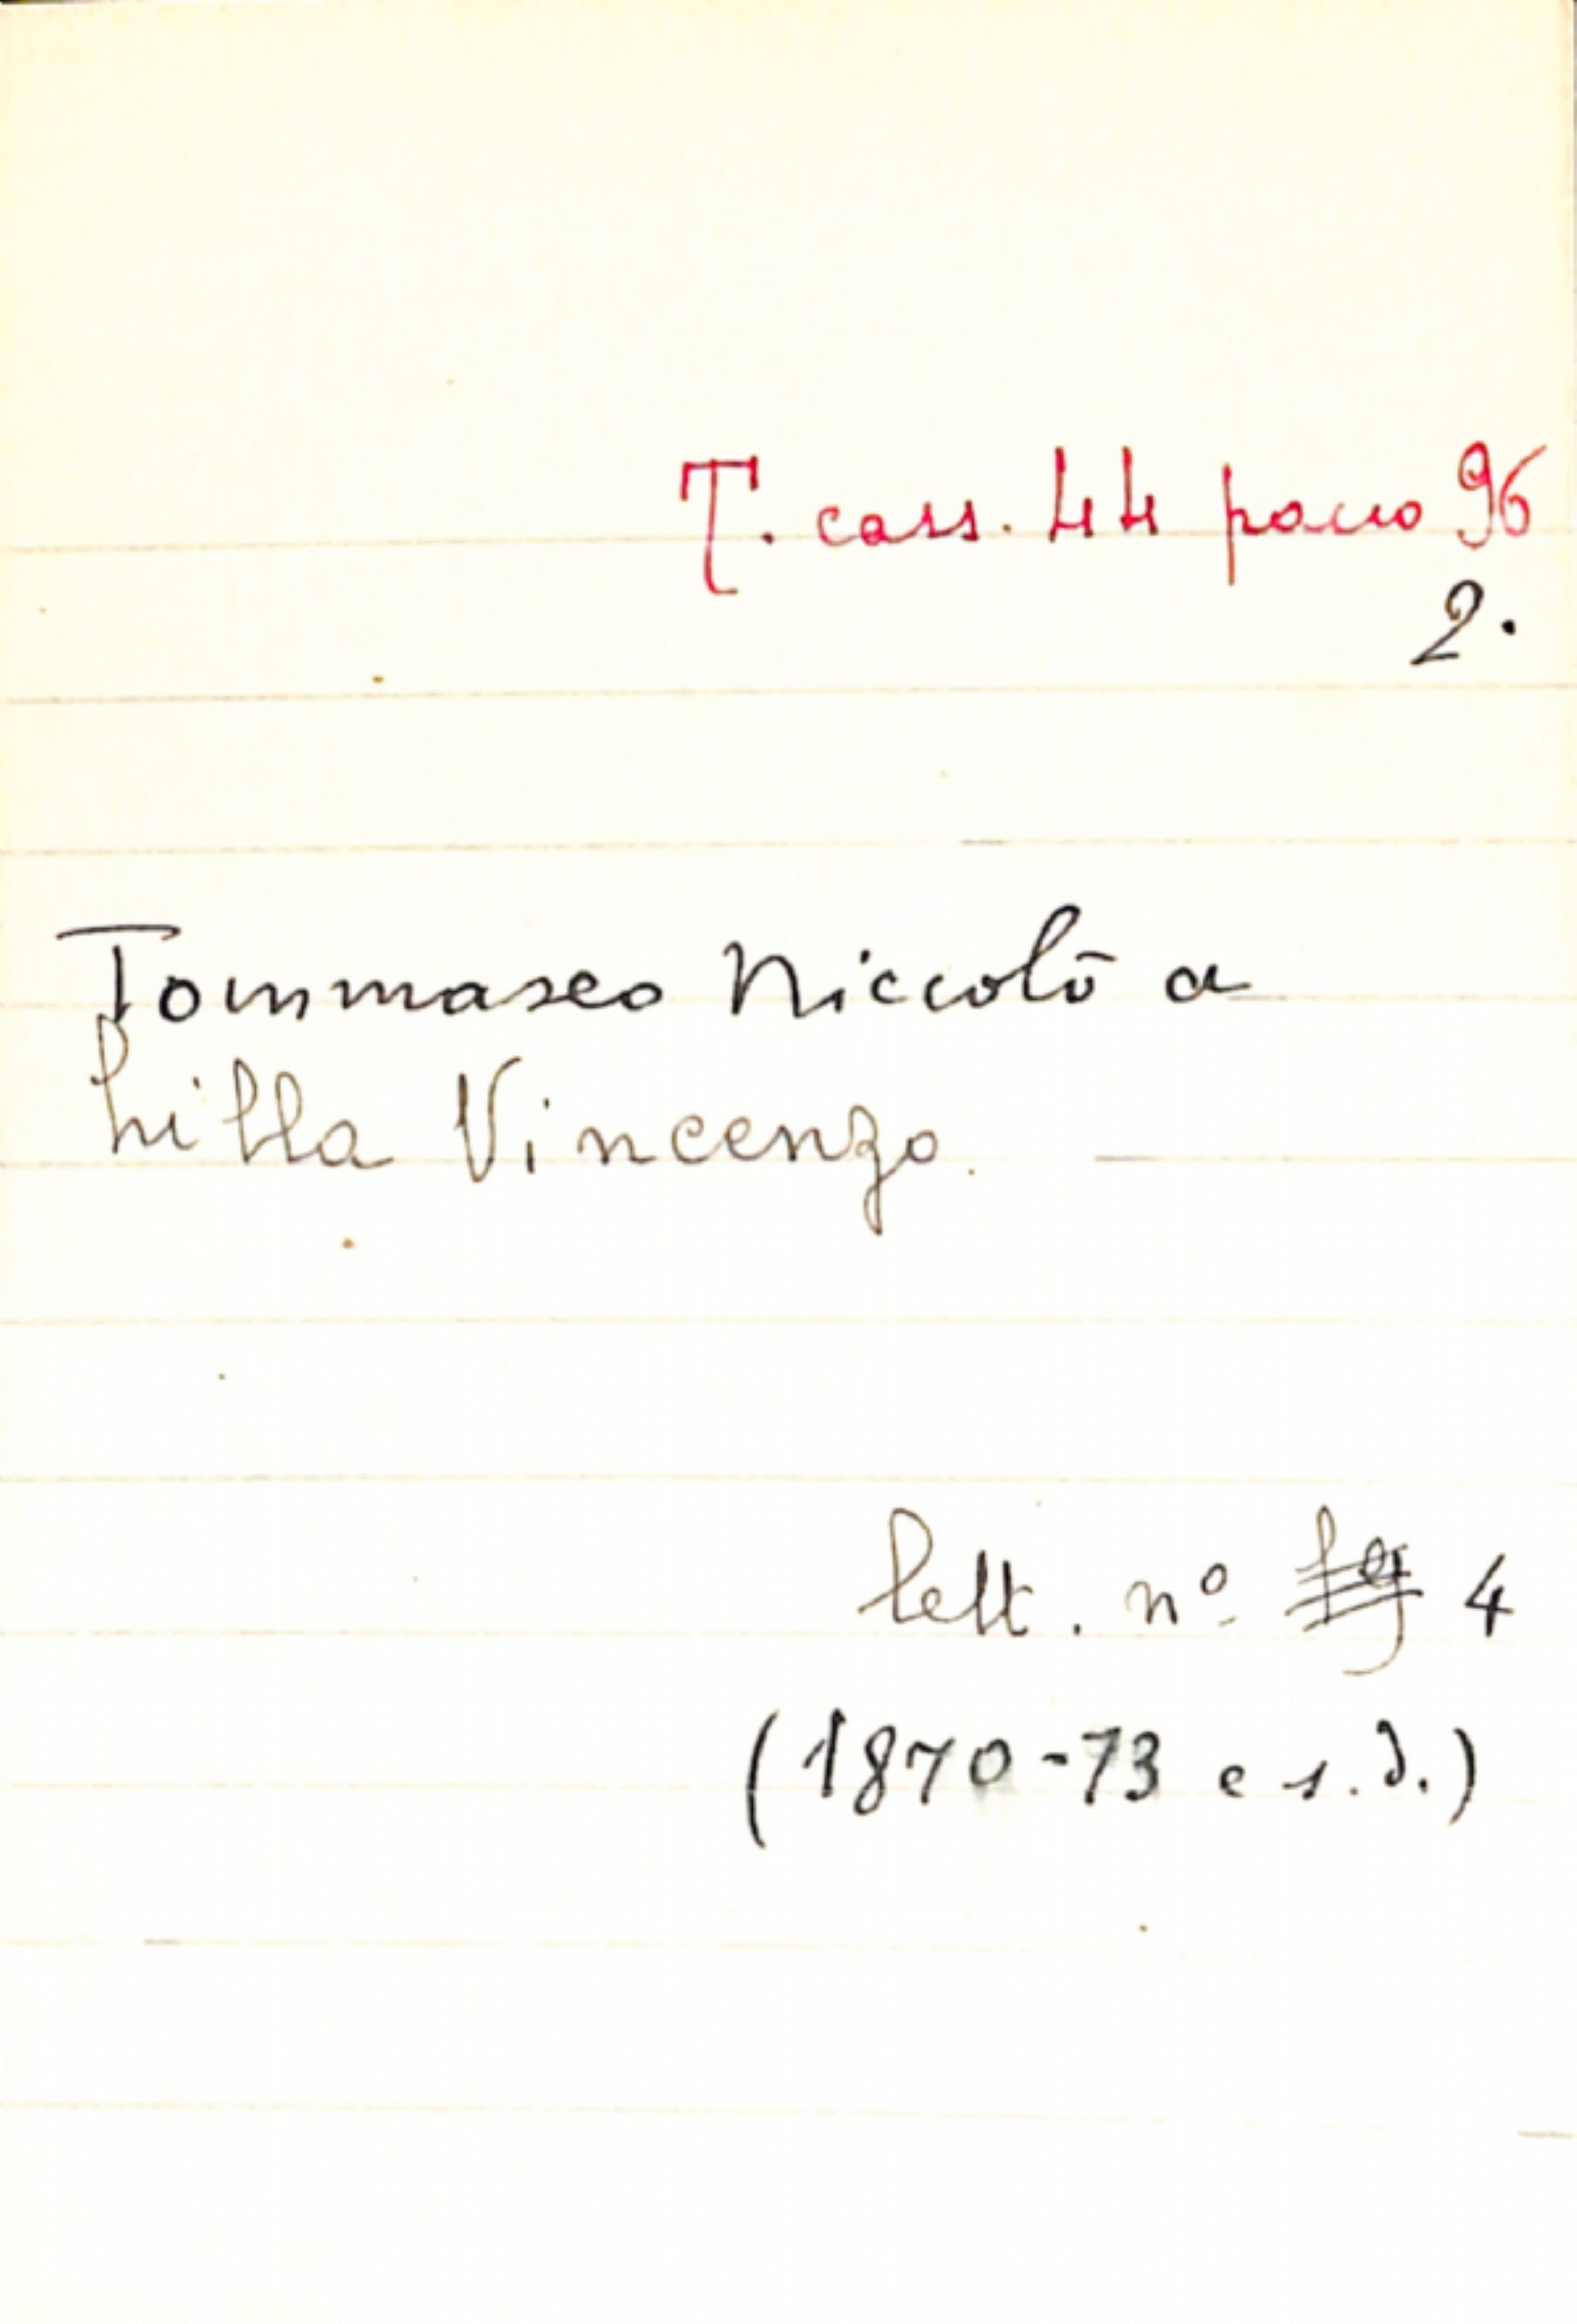 T. cass. 44 pacco 96
2.
Tommaseo Niccolò a
Lilla Vincenzo.
lett. nº 4
(1870-73 e s.d.)